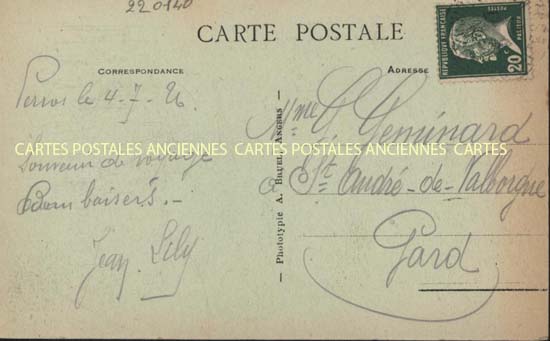 220140
CARTE POSTALE
CORRESPONDANCE
ADRESSE
RÉPUBLIQUE FRANÇAISE
POSTES
PASTEUR
20c
Perros le 4-7-26
Souvenir de voyage
Bons baisers. -
Jean Lily
— Phototypie A. BRUEL, ANGERS —
Mme G. Géminard
à St. André-de-Valborgne
Gard
CARTES POSTALES ANCIENNES CARTES POSTALES ANCIENNES CARTES